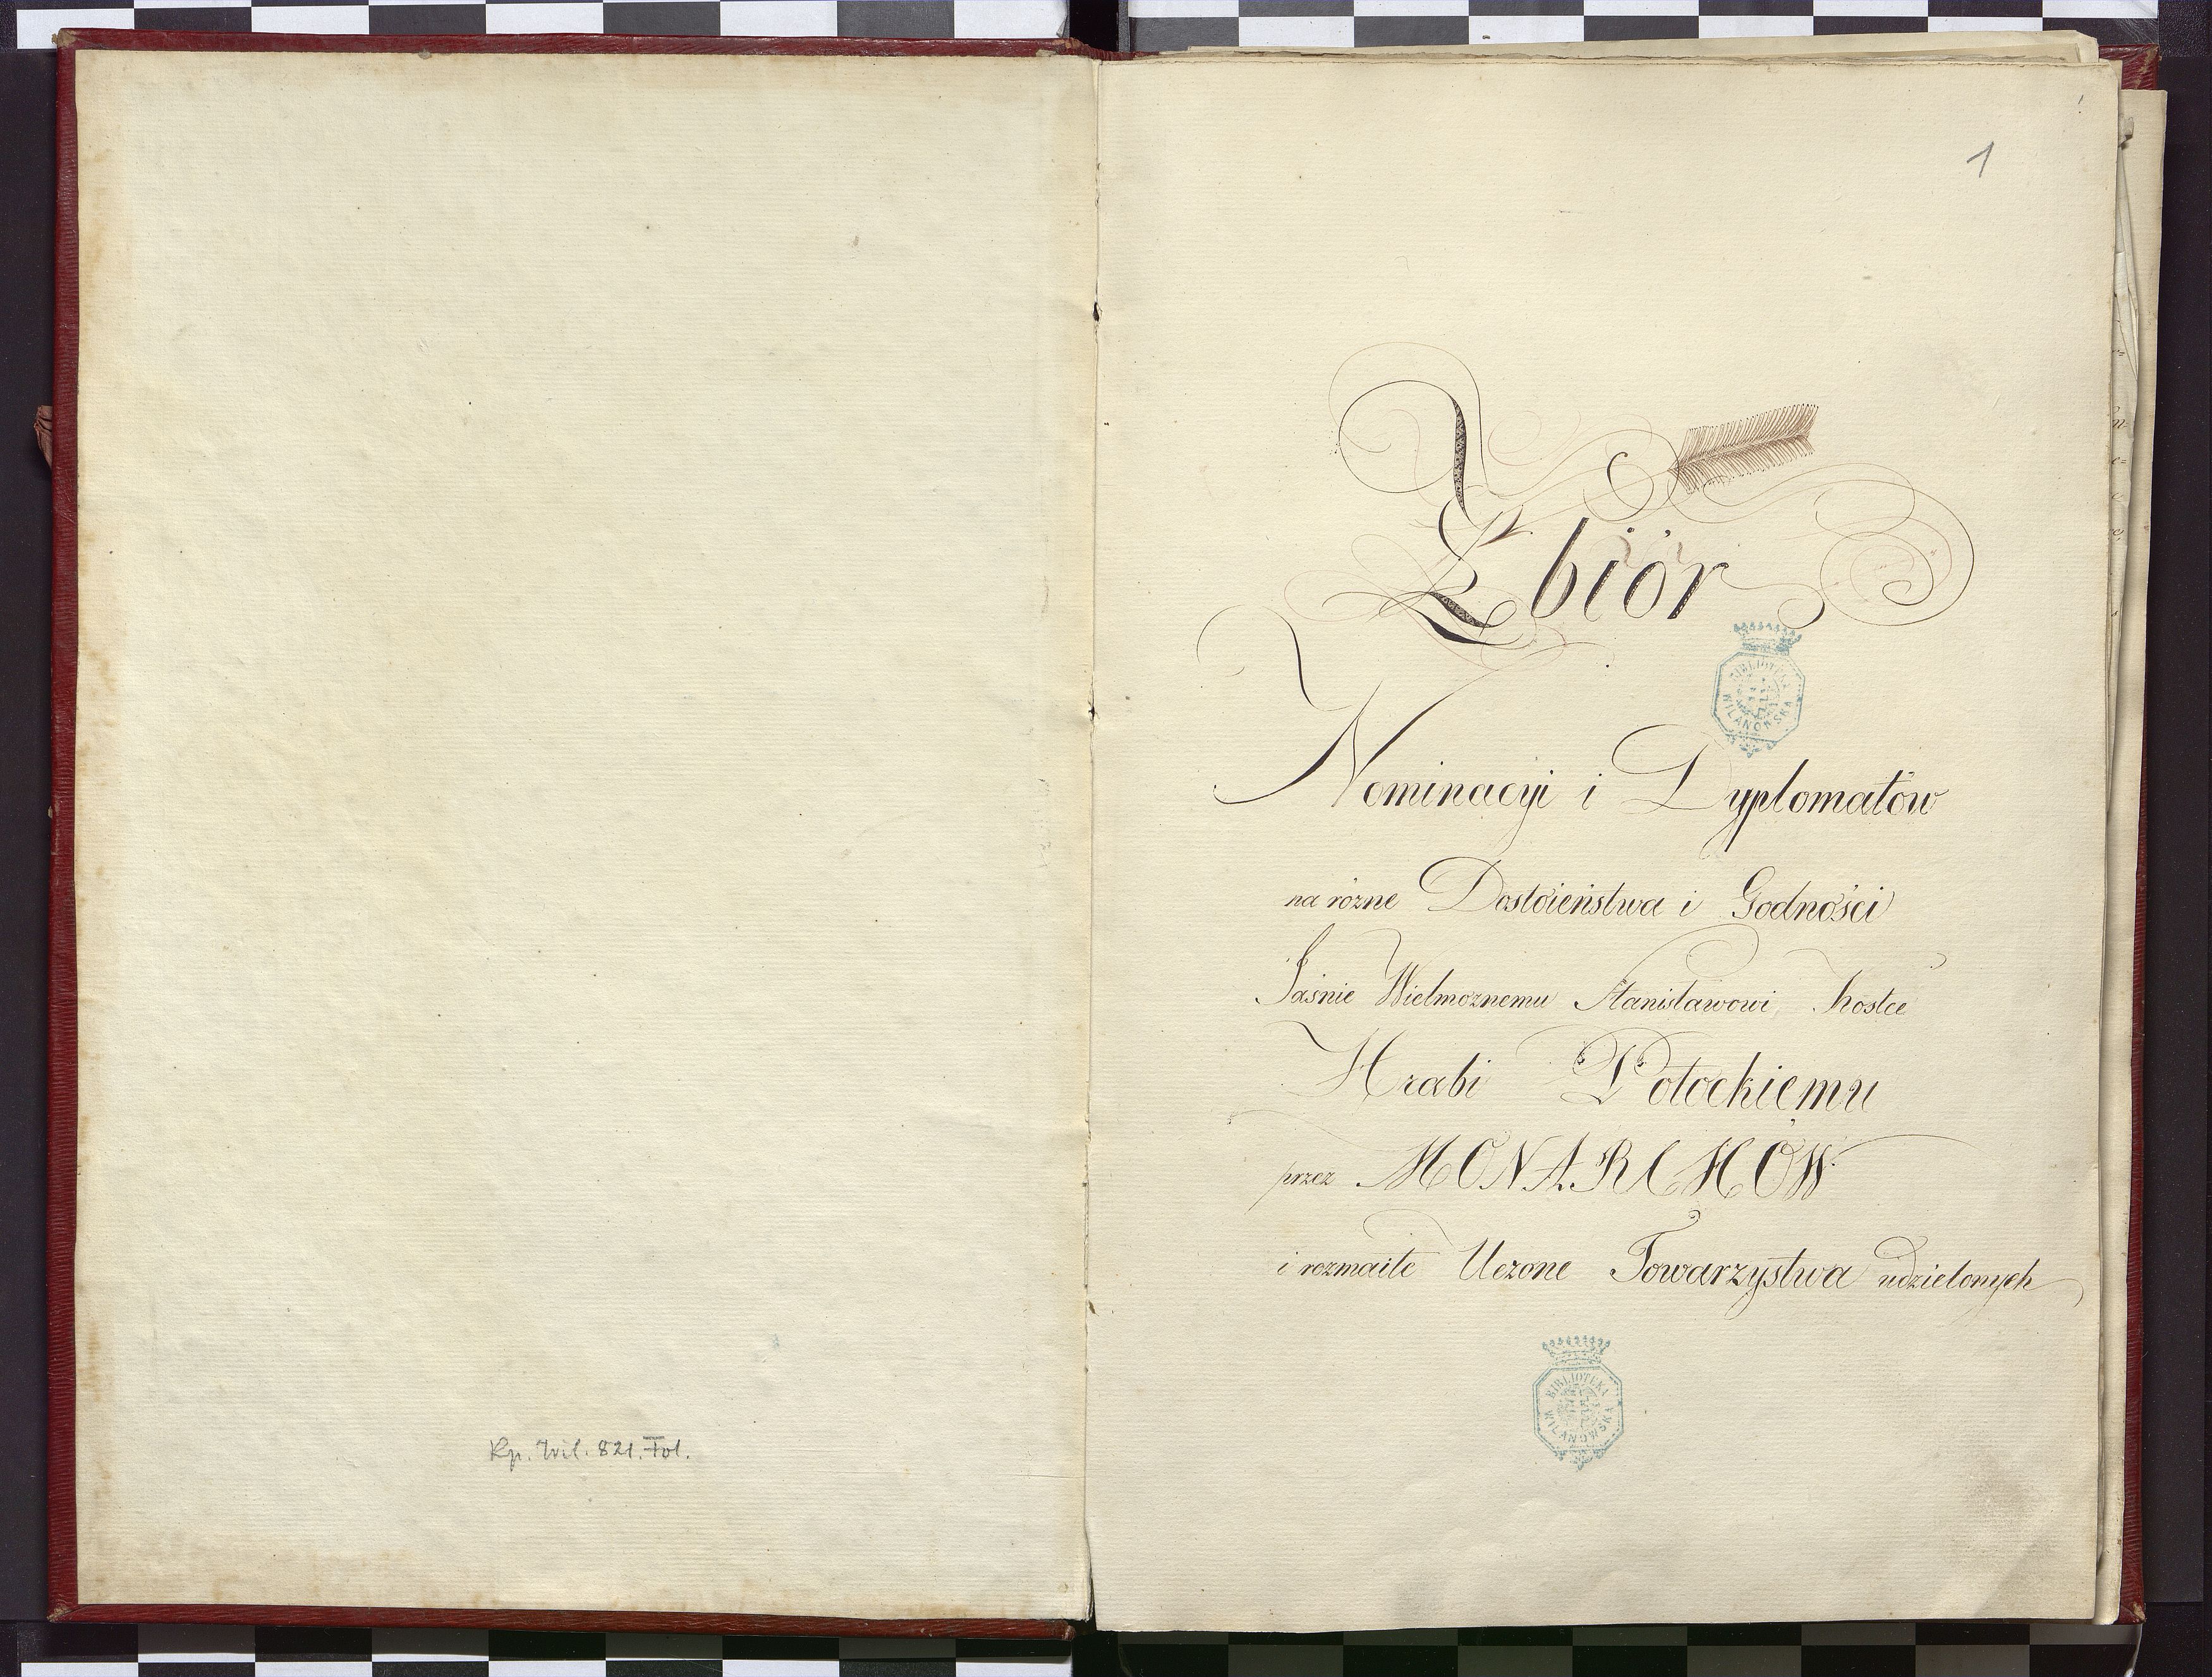 Rp. Wil. 821. Fol.
1
Zbiór
BIBLIOTEKA
WILANOWSKA
Nominacyi i Dyplomatów
na rózne Dostoieństwa i Godności
Jaśnie Wielmoznemu Stanisławowi Kostce
Hrabi Potockiemu
przez MONARCHÓW
i rozmaite Uczone Towarzystwa udzielonych
BIBLIOTEKA
WILANOWSKA